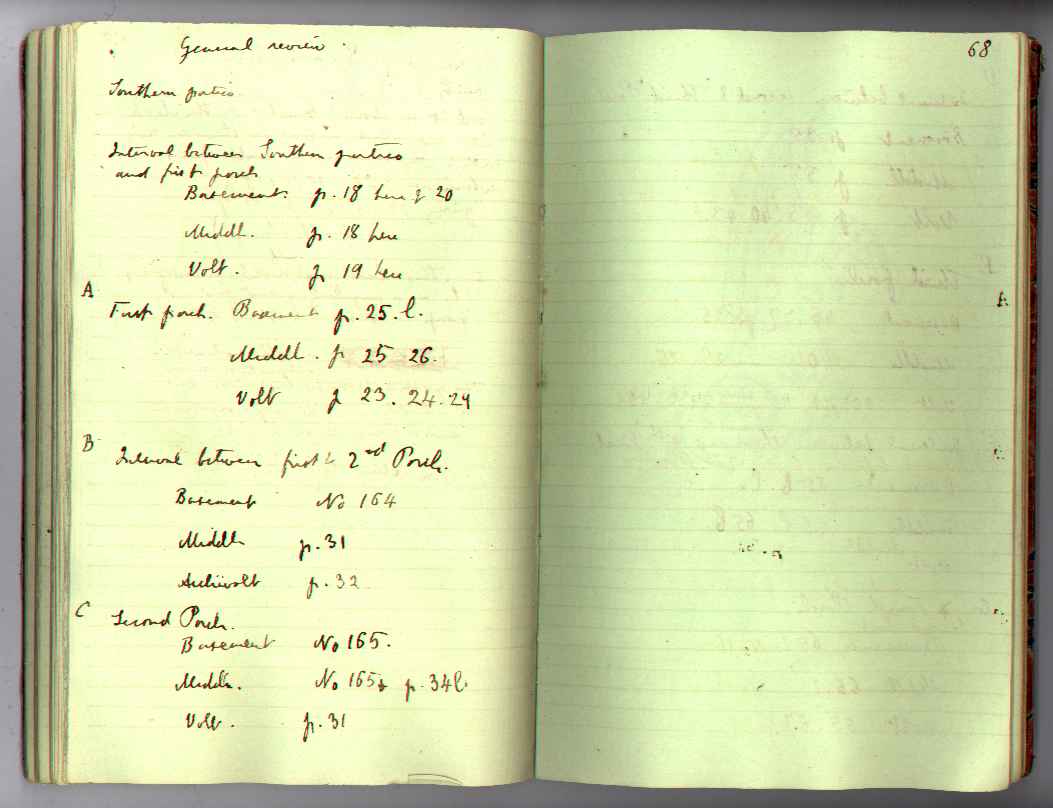 General review.
Southern portico
Interval between Southern portico
and first porch
Basement. p. 18 here & 20
Middle. p. 18 here
Volt. p 19 here
A
First porch. Basement p. 25. l.
Middle. p 25 26.
Volt p 23. 24. 29
B
Interval between first & 2nd Porch.
Basement No 164
Middle p. 31
Archivolt p. 32
C
Second Porch.
Basement No 165.
Middle. No 165 p. 34l
Volt. p. 31
68